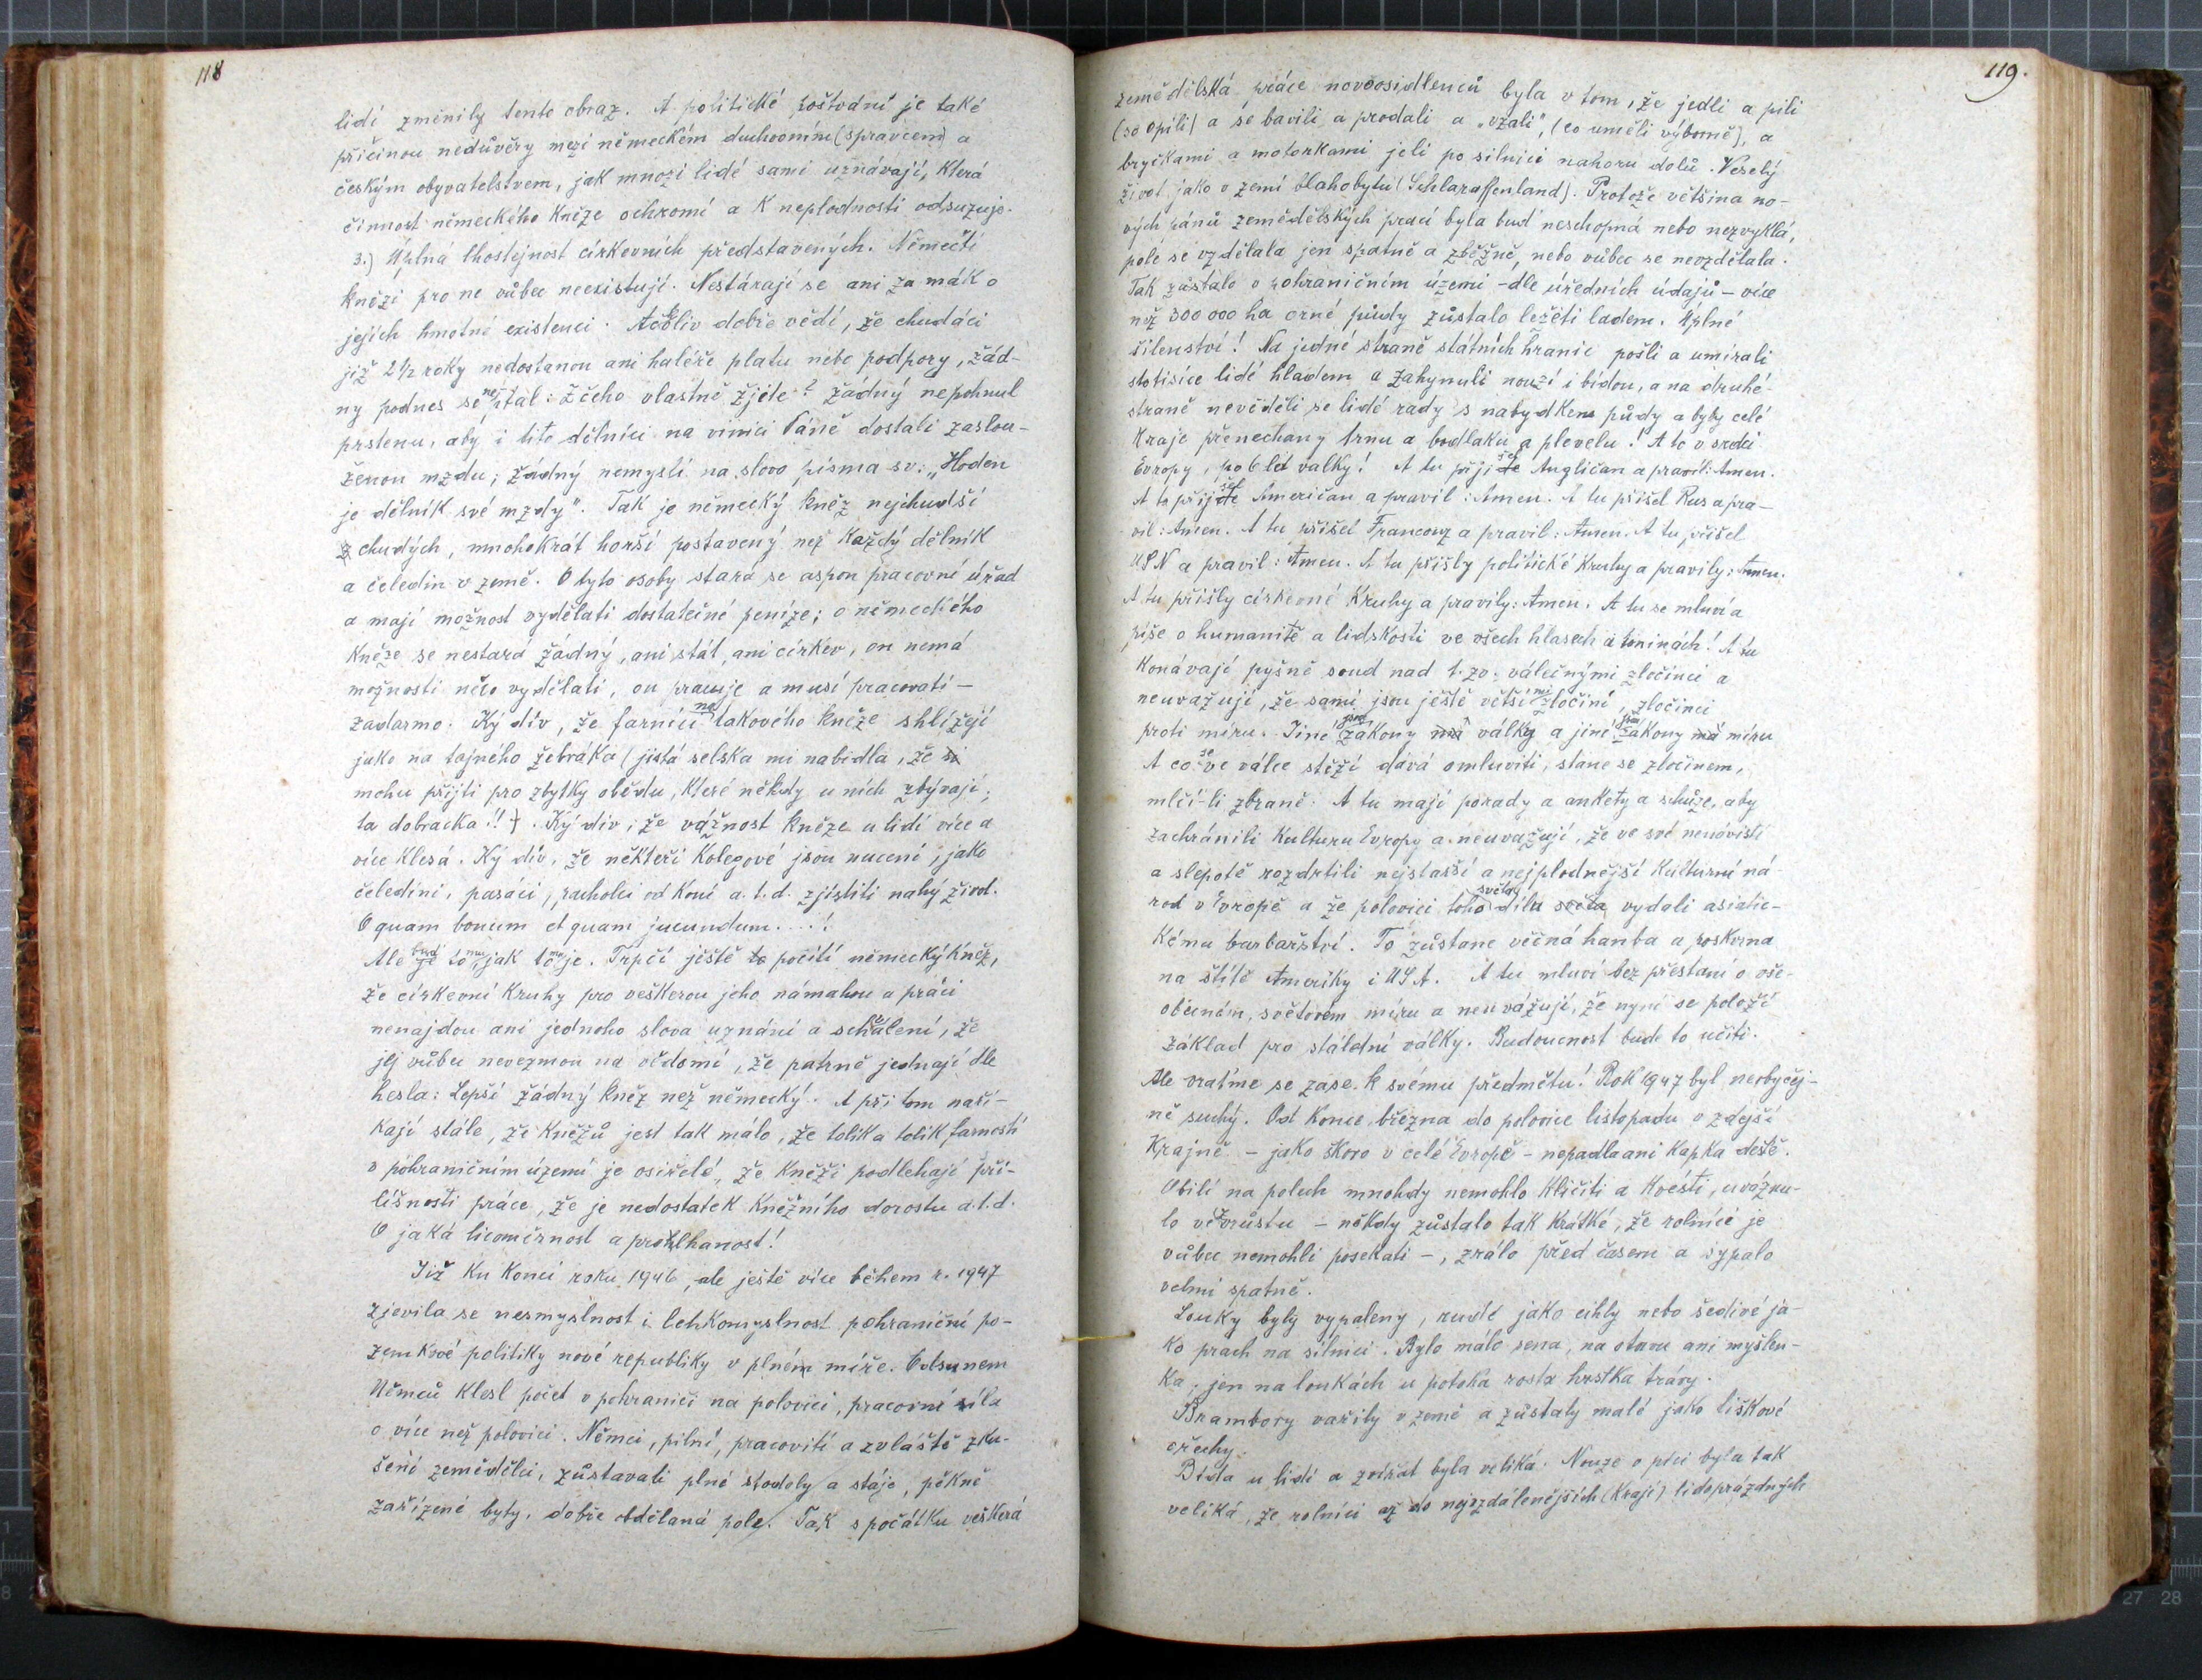 118
lidí změnily tento obraz. A politické poštvání je také
příčinou nedůvěry mezi německém duchovním (správcem) a
českým obyvatelstvem, jak mnozí lidé sami uznávají, která
činnost německého kněze ochromí a k neplodnosti odsuzuje.
3.) Úplná lhostejnost církevních představených. Němečtí
knězi pro ne vůbec neexistují. Nestárají se ani za mák o
jejích hmotné existenci. Ačkoliv dobře vědí, že chudáci
již 2½ roky nedostanou ani haléře platu nebo podpory, žád-
ny podnes se neptal: Z čeho vlastně žijete? Žádný nepohnul
prstenu, aby i tito dělníci na vinici Páně dostali zaslou-
ženou mzdu; žádný nemyslí na slovo písma sv.: „Hoden
je dělník své mzdy". Tak je německý kněz nejchudší
z chudých, mnohokrát horší postavený než každý dělník
a čeledín v země. O tyto osoby stará se aspon pracovní úřad
a mají možnost vydělati dostatečné peníze; o německého
kněze se nestará žádný, ani stát, ani církev, on nemá
možnosti něco vydělati, on pracuje a musí pracovati –
zadarmo. Ký div, že farníci na takového kněze shlížejí
jako na tajného žebráka (jistá selska mi nabidla, že si
mohu přijti pro zbytky obědu, které někdy u ních zbývají;
ta dobracka!!). Ký div, že vážnost kněze u lidí více a
více klesá. Ký div, že někteří kolegové jsou nuceni, jako
čeledíni, pasáci, pacholci od koní a.t.d. zjistiti nahý život.
O quam bonum et quam jucundum....!
Ale buď je tomu, jak tomu je. Trpčí ještě to pocítí německý kněz,
že církevní kruhy pro veškerou jeho námahou a práci
nenajdou ani jednoho slova uznání a schválení, že
jej vůbec nevezmou na vědomí, že patrně jednají dle
hesla: Lepší žádný kněz než německý. A při tom naří-
kají stále, že kněžů jest tak málo, že tolika tolik farností
v pohraničním území je osiřelé, že kněži podlehají pří-
líšnosti práce, že je nedostatek kněžního dorostu a.t.d.
O jaká licoměrnost a prolhanost!
Již ku konci roku 1946, ale ještě více během r. 1947
zjevila se nesmyslnost i lehkomyslnost pohraniční po-
zemkové politiky nové republiky v plném míře. Odsunem
Němců klesl počet v pohraničí na polovici, pracovní síla
o více než polovici. Němci, pilní, pracovití a zvláště zku-
šení zemědělci, zůstavali plné stodoly a stáje, pěkně
zařízené byty, dobře obdělaná pole. Tak s počátku veškerá
119.
zemědělská práce novoosidlenců byla v tom, že jedli a pili
(so opili) a se bavili a prodali a „vzali", (co uměli výborně), a
bryčkami a motorkami jeli po silnici nahoru dolů. Veselý
život jako v zemi blahobytu (Schlaraffenland). Protože většina no-
vých pánů zemědělských prací byla buď neschopná nebo nezvyklá,
pole se vzdělala jen spatně a zběžně, nebo vůbec se nevzdělala.
Tak zůstalo v pohraničním území – dle úředních údajů – více
než 300 000 ha orné půdy zůstalo ležeti ladem. Úplné
šílenství! Na jedné straně státních hranic pošli a umírali
stotisíce lidé hladem a zahynuli nouzí i bídou, a na druhé
straně nevěděli se lidé rady s nabydkem půdy a byly celé
kraje přenechany trnu a bodlaku a plevelu! A to v srdci
Evropy, po 6 let valky! A tu přišel Angličan a pravil: Amen.
A tu přišel Američan a pravil: Amen. A tu přišel Rus a pra-
vil: Amen. A tu přišel Francouz a pravil: Amen. A tu přišel
USN a pravil: Amen. A tu přišly politické kruhy a pravily: Amen.
A tu přišly církevné kruhy a pravily: Amen. A tu se mluví a
píše o humanitě a lidskosti ve všech hlasech a toninách! A tu
konávají pyšně soud nad t.zv. válečnými zločinci a
neuvažují, že sami jsou ještě většími zločiní, zločinci
proti míru. Jiné jsou zákony má války a jiné jsou zákony má míru
A co se ve válce stěží dává omluviti, stane se zločinem,
mlčí-li zbraně. A tu mají porady a ankety a schůze, aby
zachránili kulturu Evropy a neuvažují, že ve své nenávisti
a slepotě rozdrtili nejstarší a nejplodnější kulturní ná-
rod v Evropě a že polovici toho světa dílu světa vydali asiatic-
kému barbařství. To zůstane věčná hanba a poskvrna
na štítě Ameriky i USA. A tu mluví bez přestaní o vše-
obecném, světovém míru a neuvážují, že nyní se položí
základ pro stáletní války. Budoucnost bude to učiti.
Ale vraťme se zase k svému předmětu! Rok 1947 byl neobyčej-
ně suchý. Od konce března do polovice listopadu v zdejší
krajně – jako skoro v celé Evropě – nepadla ani kapka deště.
Obilí na polech mnohdy nemohlo klíčiti a kvésti, uváznu-
lo ve vzrůstu – někdy zůstalo tak krátké, že rolníci je
vůbec nemohli posekati –, zrálo před časem a sypalo
velmi spatně.
Louky byly vypaleny, rudé jako cihly nebo šedivé ja-
ko prach na silnici. Bylo málo sena, na otavu ani myšlen-
ka; jen na loukách u potoka rostla hrstka trávy.
Brambory vařily v země a zůstaly malé jako liškové
ořechy.
Bída u lidí a zvířat byla veliká. Nouze o píci byla tak
veliká, že rolníci až do nejvzdálenějších (krajů) lidoprázdných